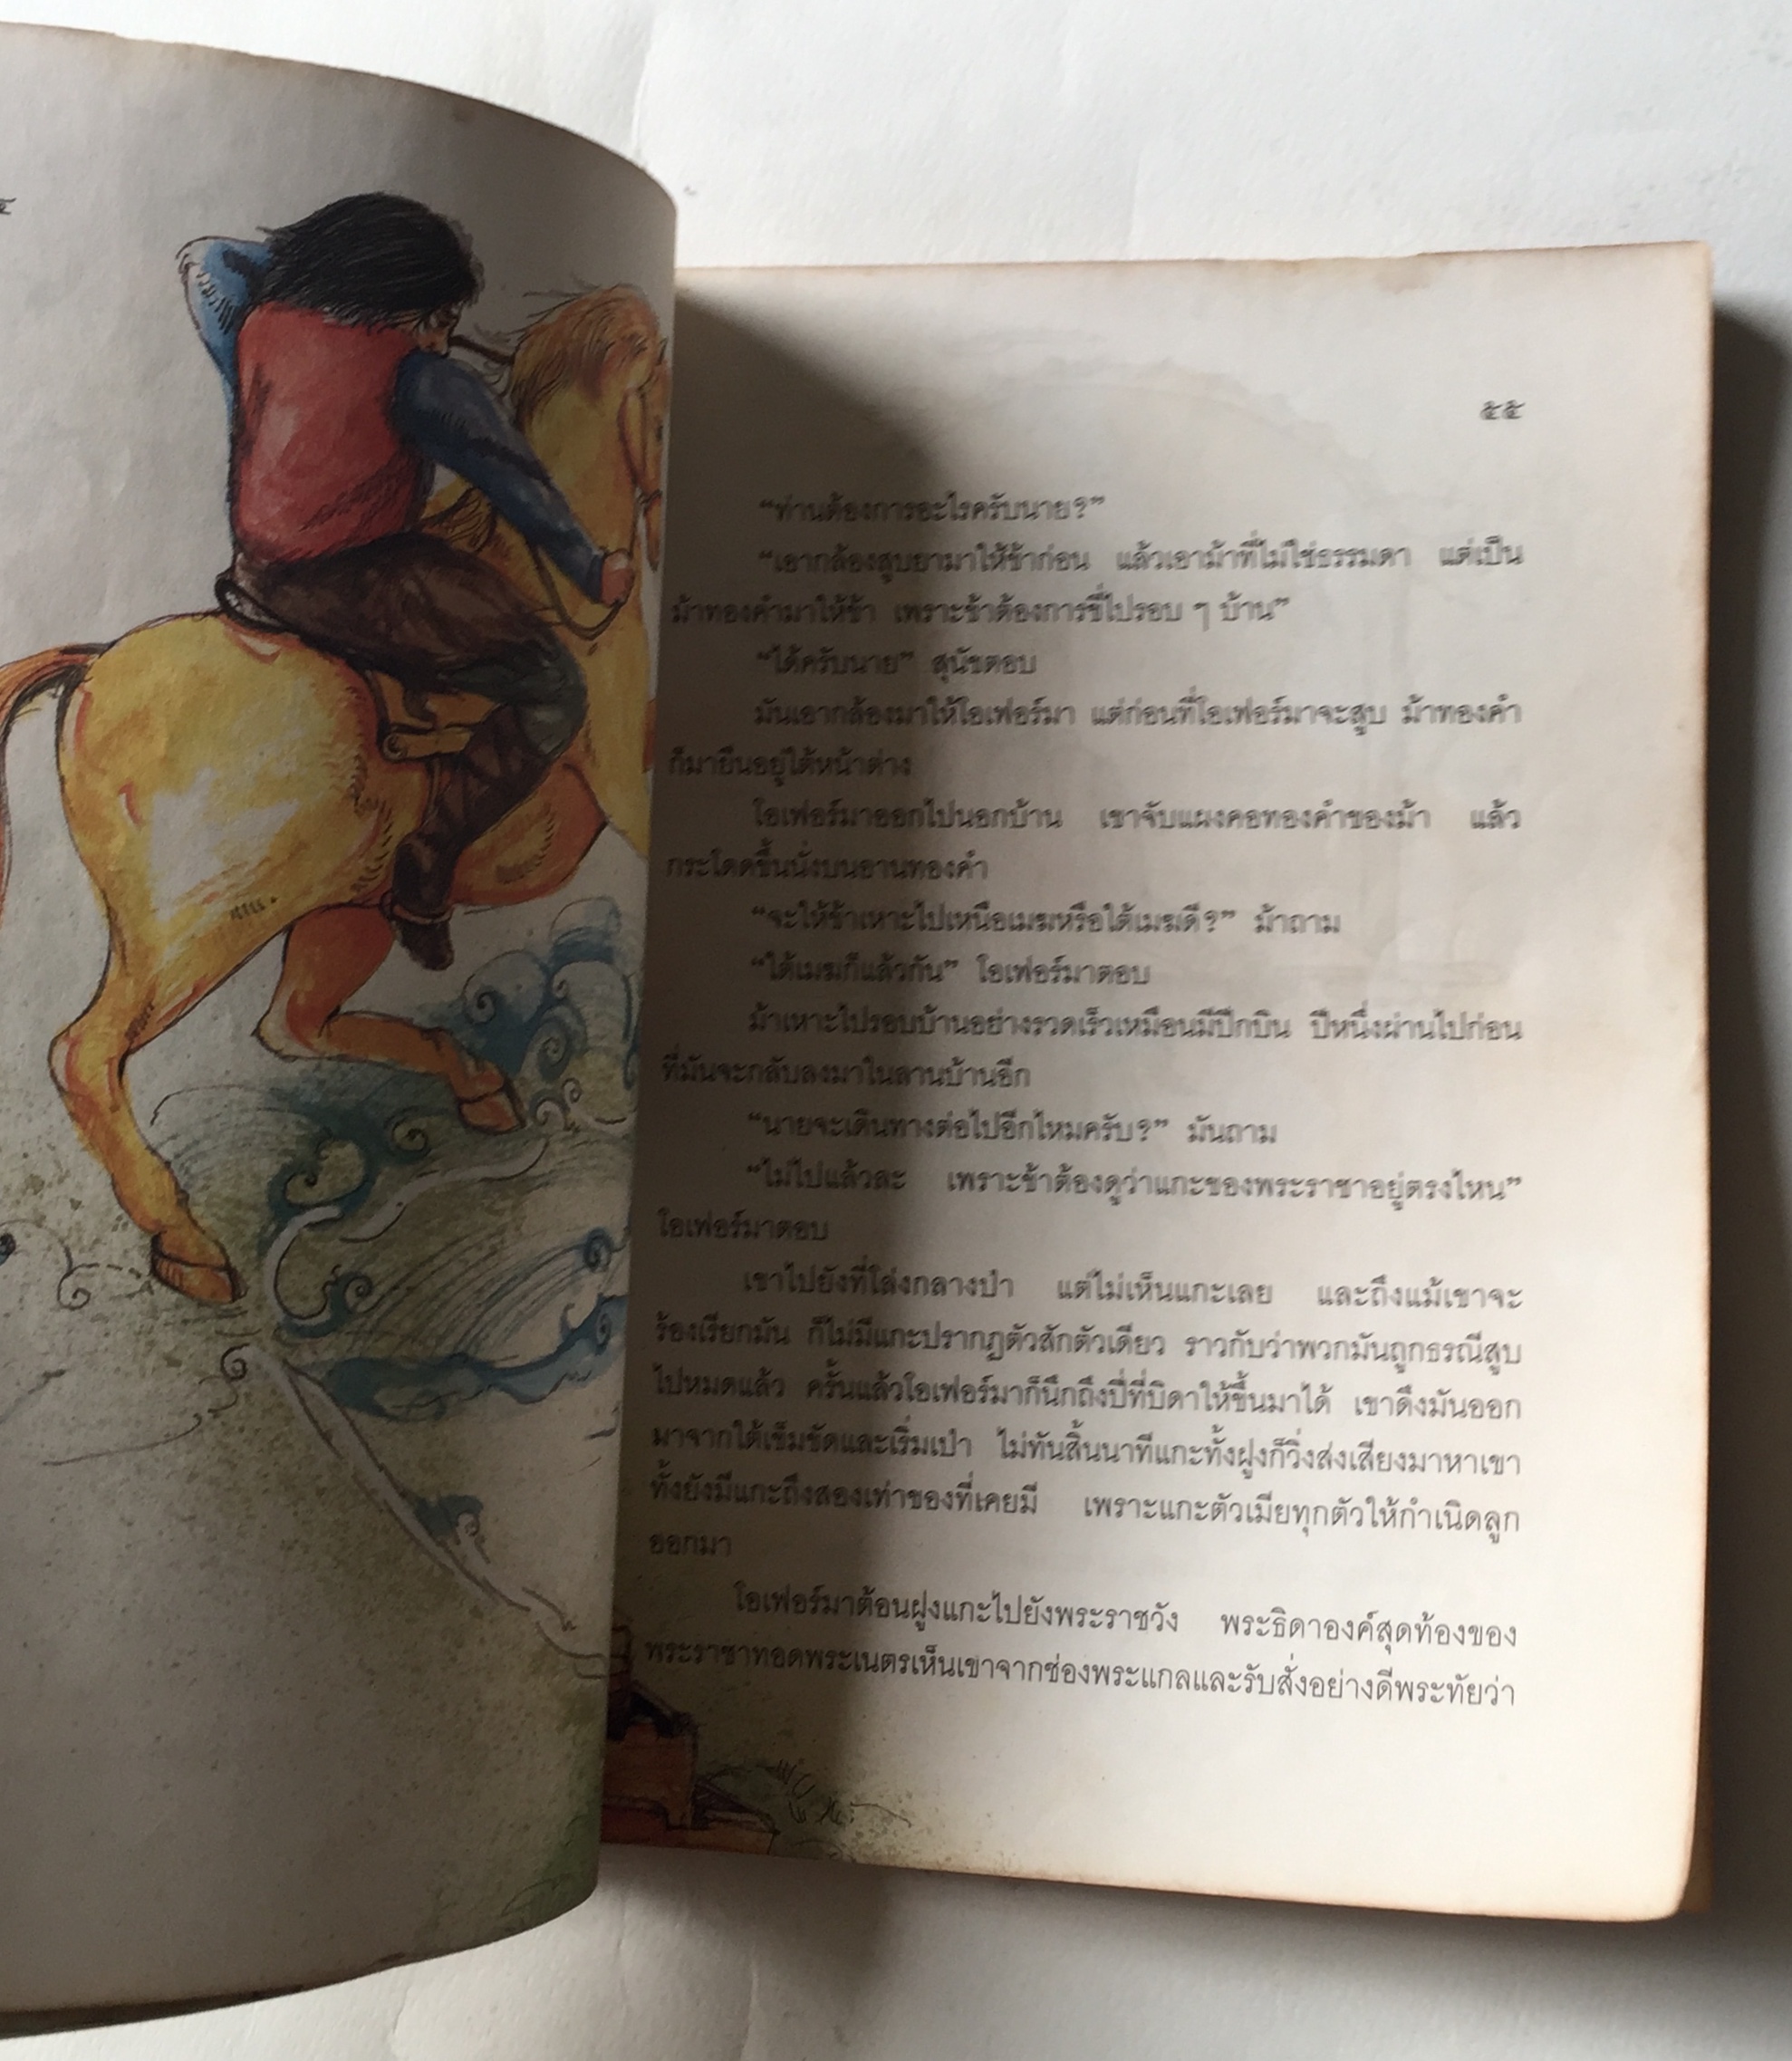 ๕๕
“ท่านต้องการอะไรครับนาย?”
“เอากล้องสูบยามาให้ข้าก่อน แล้วเอาม้าที่ไม่ใช่ธรรมดา แต่เป็น
ม้าทองคำมาให้ข้า เพราะข้าต้องการขี่ไปรอบ ๆ บ้าน”
“ได้ครับนาย” สุนัขตอบ
มันเอากล้องมาให้โอเฟอร์มา แต่ก่อนที่โอเฟอร์มาจะสูบ ม้าทองคำ
ก็มายืนอยู่ใต้หน้าต่าง
โอเฟอร์มาออกไปนอกบ้าน เขาจับแผงคอทองคำของม้า แล้ว
กระโดดขึ้นนั่งบนอานทองคำ
“จะให้ข้าเหาะไปเหนือเมฆหรือใต้เมฆดี?” ม้าถาม
“ใต้เมฆก็แล้วกัน” โอเฟอร์มาตอบ
ม้าเหาะไปรอบบ้านอย่างรวดเร็วเหมือนมีปีกบิน ปีหนึ่งผ่านไปก่อน
ที่มันจะกลับลงมาในลานบ้านอีก
“นายจะเดินทางต่อไปอีกไหมครับ?” มันถาม
“ไม่ไปแล้วละ เพราะข้าต้องดูว่าแกะของพระราชาอยู่ตรงไหน”
โอเฟอร์มาตอบ
เขาไปยังที่โล่งกลางป่า แต่ไม่เห็นแกะเลย และถึงแม้เขาจะ
ร้องเรียกมัน ก็ไม่มีแกะปรากฏตัวสักตัวเดียว ราวกับว่าพวกมันถูกธรณีสูบ
ไปหมดแล้ว ครั้นแล้วโอเฟอร์มาก็นึกถึงปี่ที่บิดาให้ขึ้นมาได้ เขาดึงมันออก
มาจากใต้เข็มขัดและเริ่มเป่า ไม่ทันสิ้นนาทีแกะทั้งฝูงก็วิ่งส่งเสียงมาหาเขา
ทั้งยังมีแกะถึงสองเท่าของที่เคยมี เพราะแกะตัวเมียทุกตัวให้กำเนิดลูก
ออกมา
โอเฟอร์มาต้อนฝูงแกะไปยังพระราชวัง พระธิดาองค์สุดท้องของ
พระราชาทอดพระเนตรเห็นเขาจากช่องพระแกลและรับสั่งอย่างดีพระทัยว่า